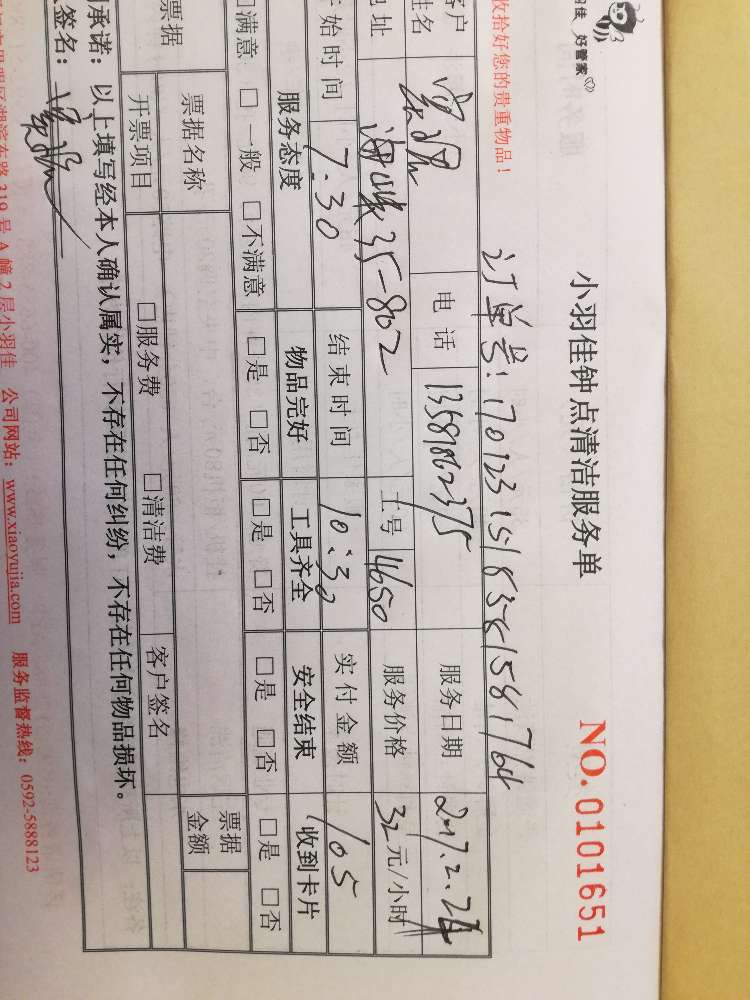 好管家
小羽佳钟点清洁服务单
NO. 0101651
收拾好您的贵重物品！
订单号：
客户 电话 13581862375 服务日期 2017.2.
姓名
地址 35-802 工号 4650 服务价格 32元/小时
开始时间 7:30 结束时间 10:30 实付金额 105
服务态度 物品完好 工具齐全 安全结束 (收到卡片
□满意 □一般 □不满意 □是 □否 □是 □否 □是 □否 □是 □否
票据 票据名称 票据金额
开票项目 □服务费 □清洁费 客户签名
承诺：以上填写经本人确认属实，不存在任何纠纷，不存在任何物品损坏。
签名：
湖滨东路319号A幢2层小羽佳 公司网站：www.xiaoyujia.com 服务监督热线：0592-5888123